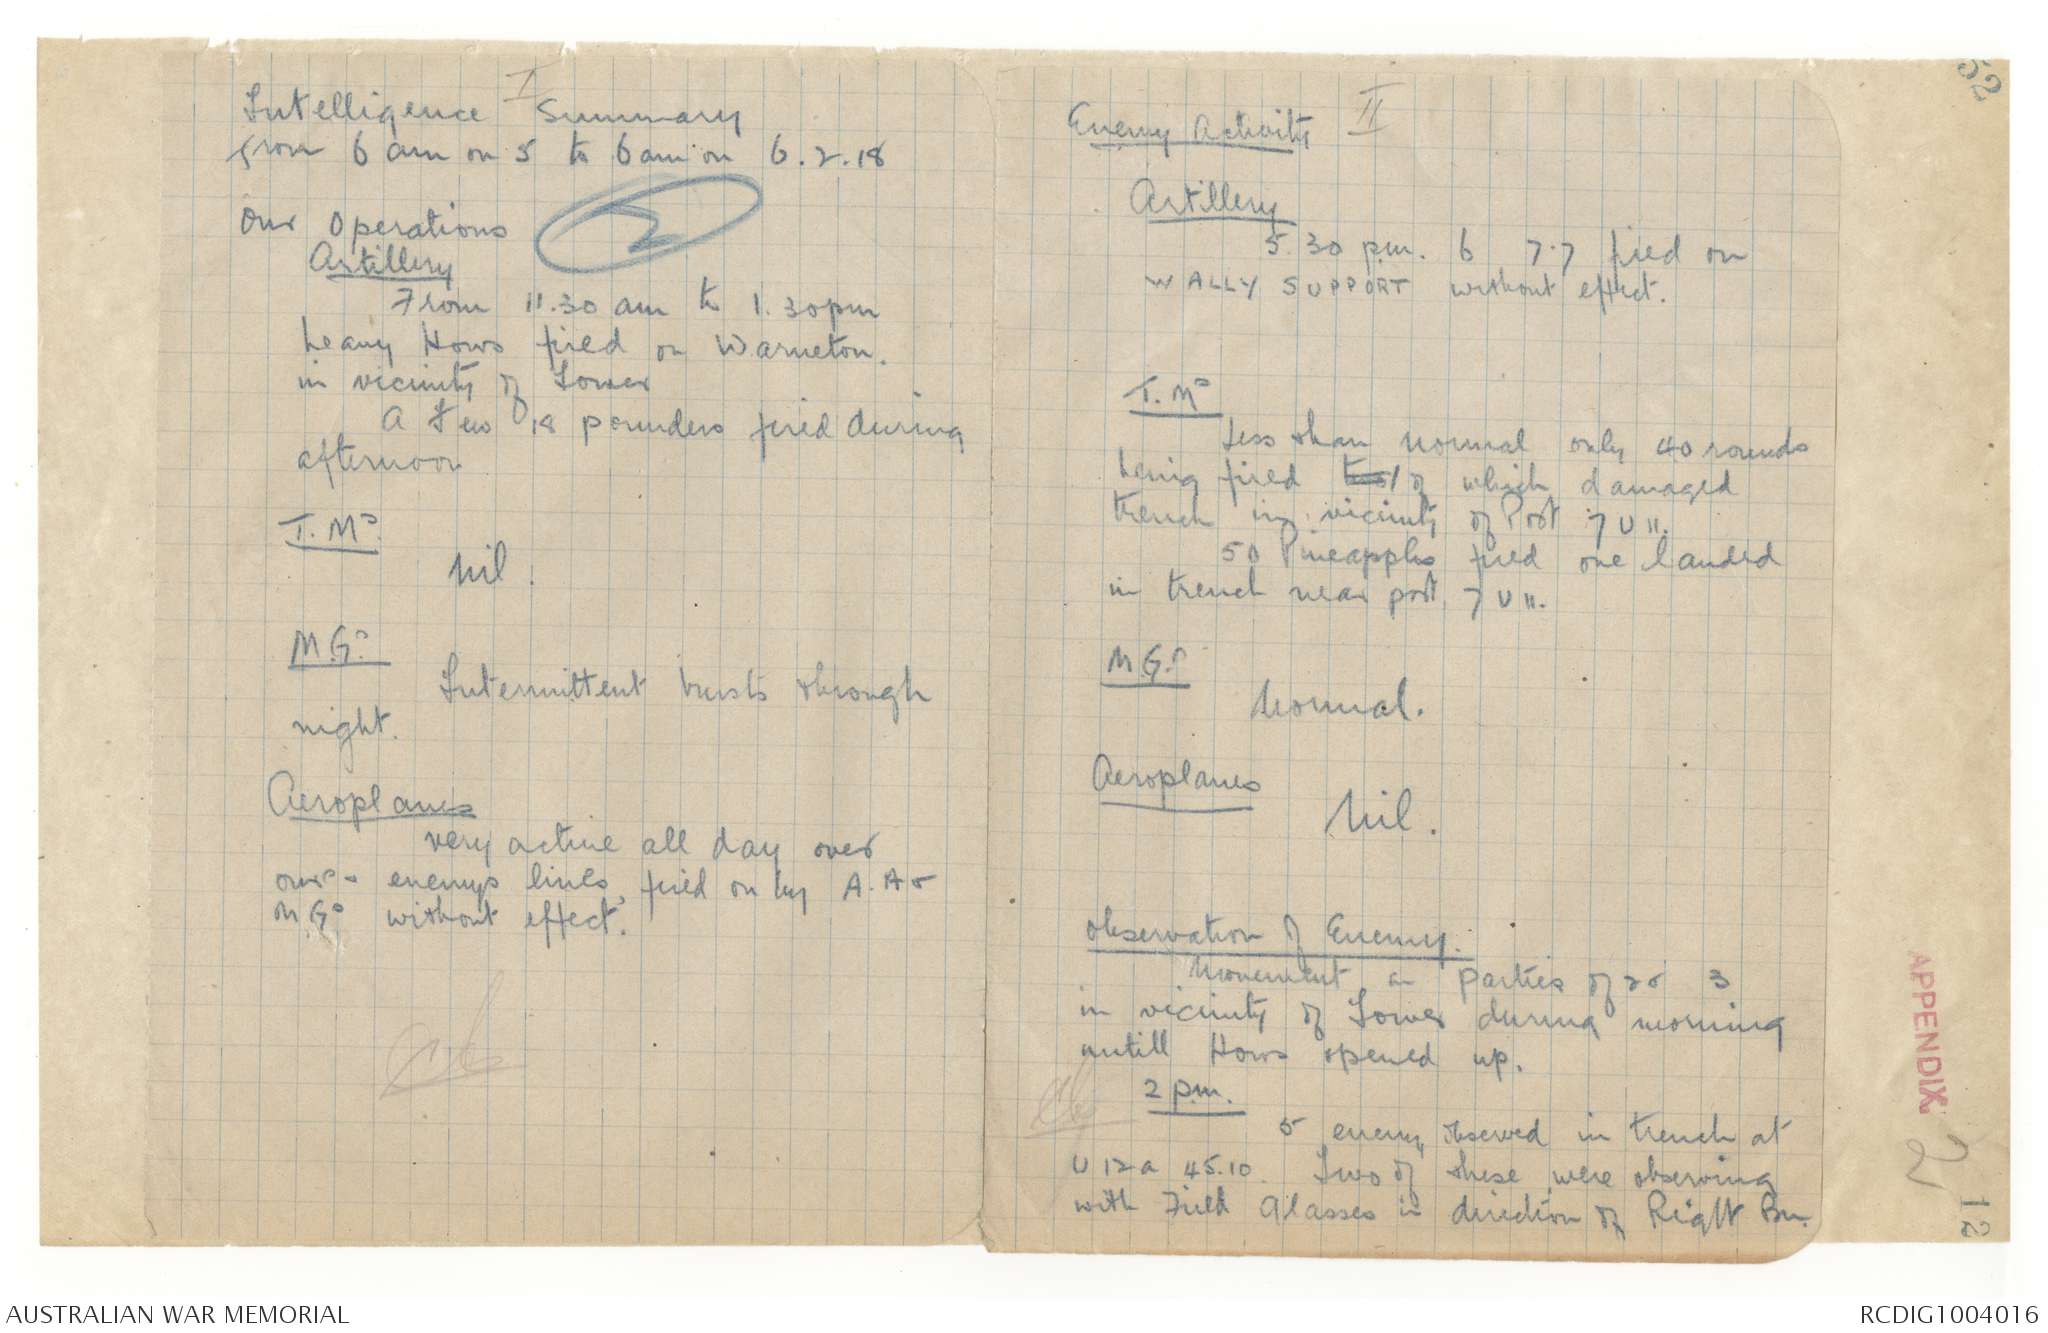 I
Intelligence Summary
from 6 am on 5 to 6 am on 6.2.18
2
Our Operations
Artillery
From 11.30 am to 1.30pm
heavy Hows fired on Warneton.
in vicinity of Tower
A few 18 pounders fired during
afternoon
T.Ms
Nil.
M.Gs
Intermittent bursts through
night.
Aeroplanes
very active all day over
ours & enemys lines, fired on by A.A &
M Gs without effect.
II
Enemy Activity
Artillery
5.30 p.m. 6 7.7 fired on
WALLY SUPPORT without effect.
T.Ms
Less than normal only 40 rounds
being fired 1 of which damaged
trench in vicinity of Post 7 U 11.
50 Pineapples fired one landed
in trench near post 7 U 11.
M G.s
Normal.
Aeroplanes
Nil.
Observation of Enemy.
Movement in parties of 2 & 3
in vicinity of Tower during morning
untill Hows opened up.
2 p.m.
5 enemy observed in trench at
U 12 a 45.10. Two of these were observing
with Field Glasses in direction of Right Bn.
52
APPENDIX
2
12
AUSTRALIAN WAR MEMORIAL
RCDIG1004016